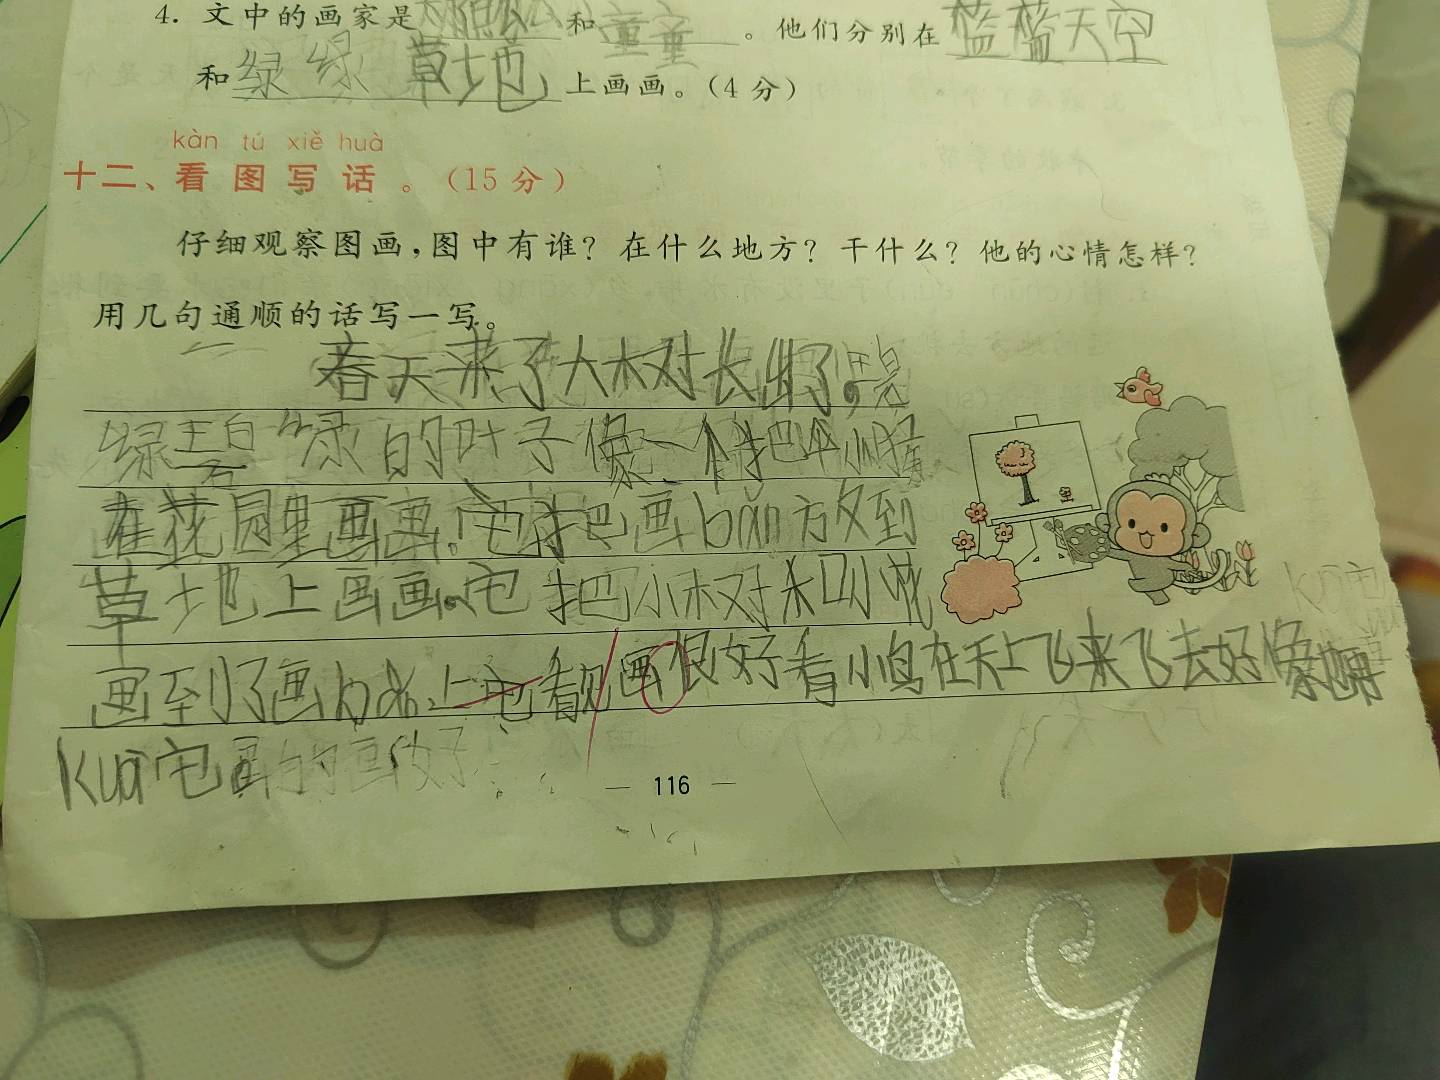 4. 文中的画家是 和童童。他们分别在蓝蓝天空
和绿绿草地上画画。(4分)
kàn tú xiě huà
十二、看图写话。(15分)
仔细观察图画,图中有谁?在什么地方?干什么?他的心情怎样?
用几句通顺的话写一写。
春天来了大木对长出了。
绿 绿的叶子像一个把伞小猴
在花园里画画。它把画bǎn放到
草地上画画。它把小木对和小花
画到了画 上它看见画很好看小鸟在天上飞来飞去好像
kuā它画的画好
— 116 —